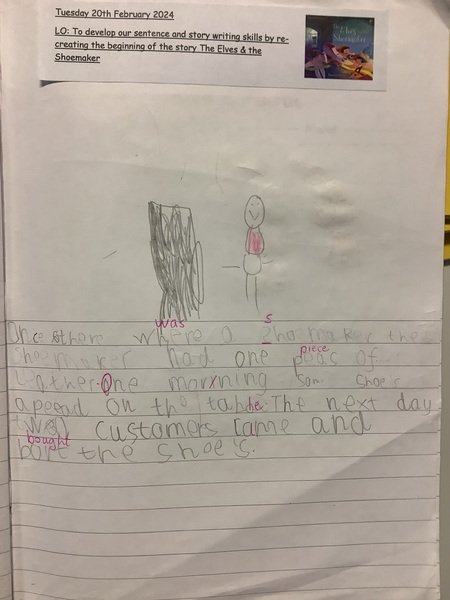 Tuesday 20th February 2024
LO: To develop our sentence and story writing skills by re-
creating the beginning of the story The Elves & the
Shoemaker
The Elves
Shoemaker
was s
Once there where a Shoemaker the
Shoemaker had one piece peas of
leather. One morning Som Shoe's
apeead on the the. The next day
two customers came and
bought
boit the Shoe's.